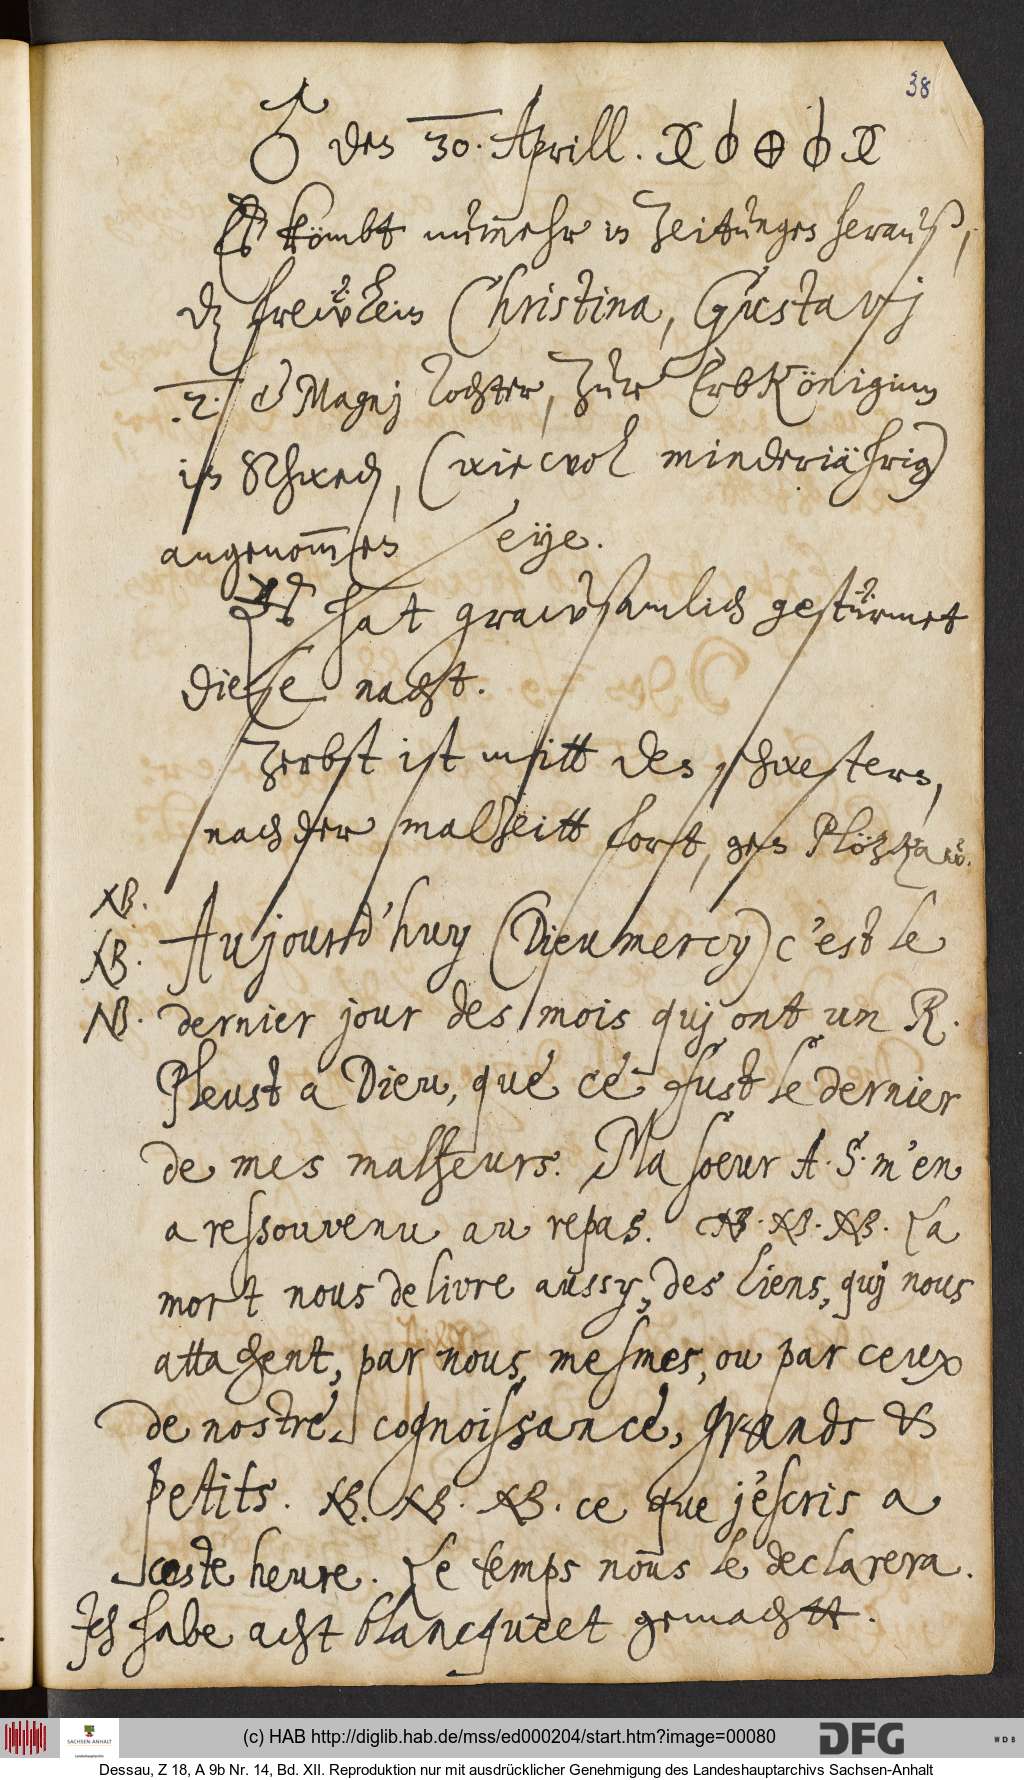 38
♂ den 30. Aprill.
Es kömbt nunmehr in Zeitungen herauß,
dz frewlein Christina, Gustavj
.2. Magnj Tochter, zur ErbKöniginn
in Schweden, (wiewol minderjährig)
angenommen seye.
Es hat grawsamlich gestürmet
diese nacht.
Zerbst ist mitt den schwestern,
nach der malzeitt fort, gen Plötzkaw.
NB. Aujourd'huy (Dieu mercy) c'est le
NB.
NB. dernier jour des mois quj ont un R.
Pleust a Dieu, que ce fust le dernier
de mes malheurs. Ma soeur A. S. m'en
a ressouvenu au repas. NB. NB. NB. La
mort nous delivre aussy, des liens, quj nous
attachent, par nous mesmes, ou par ceux
de nostre cognoissance, grands &
petits. NB. NB. NB. ce que j'escris a
ceste heure. Le temps nous le declarera.
Ich habe acht blancqueet gemachtt.
(c) HAB http://diglib.hab.de/mss/ed000204/start.htm?image=00080
SACHSEN-ANHALT
DFG
WDB
Dessau, Z 18, A 9b Nr. 14, Bd. XII. Reproduktion nur mit ausdrücklicher Genehmigung des Landeshauptarchivs Sachsen-Anhalt